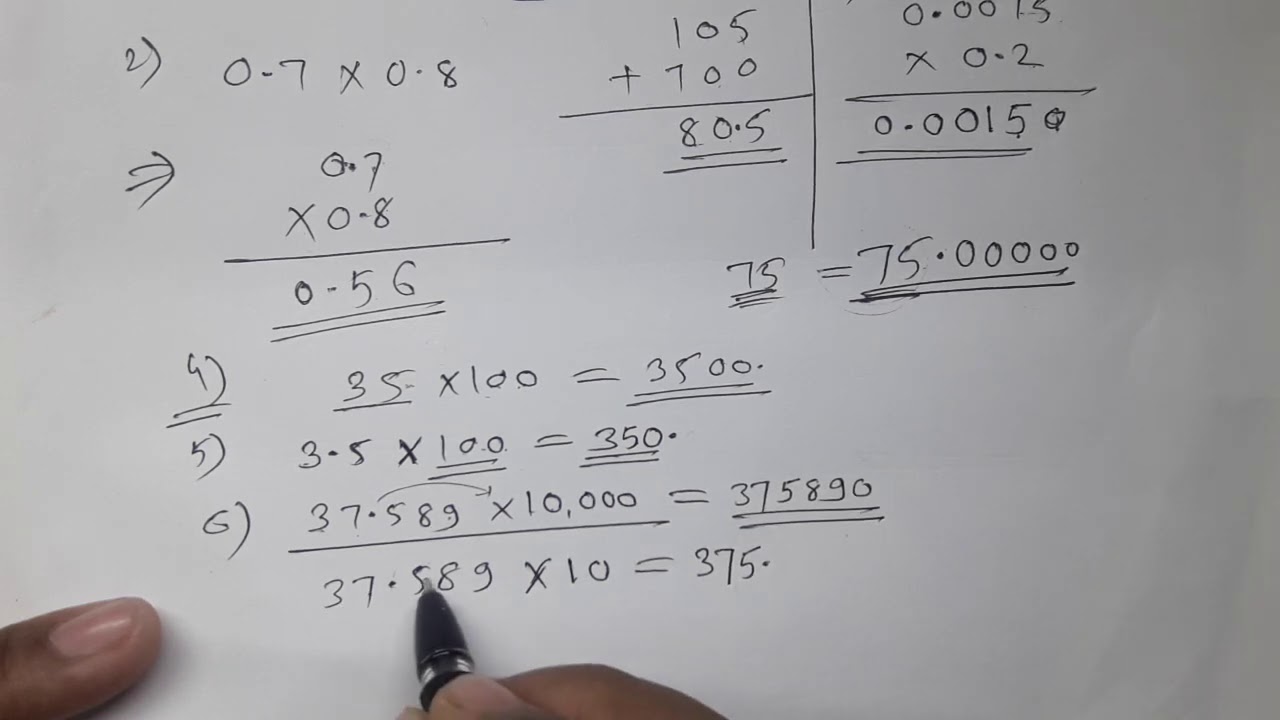 2) 0.7 × 0.8
⇒ 0.7
× 0.8
0.56
105
+ 700
80.5
0.0015
× 0.2
0.00150
75 = 75.00000
4) 35 × 100 = 3500.
5) 3.5 × 100 = 350.
6) 37.589 × 10,000 = 375890
37.589 × 10 = 375.